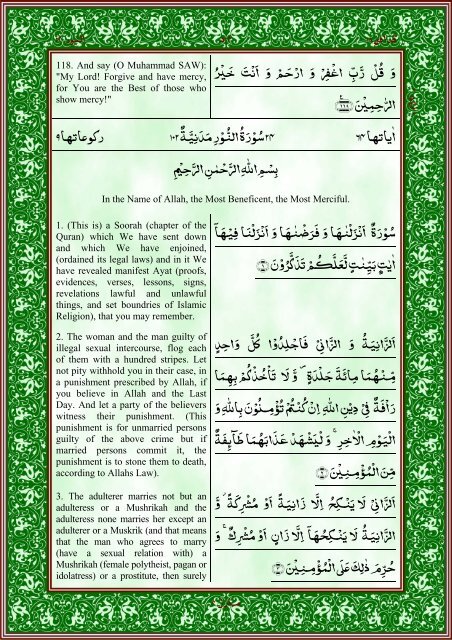 118. And say (O Muhammad SAW):
"My Lord! Forgive and have mercy,
for You are the Best of those who
show mercy!"
وَ قُلْ رَّبِّ اغْفِرْ وَ ارْحَمْ وَ اَنْتَ خَيْرُ
الرّٰحِمِيْنَ ﴿۱۱۸﴾
اٰیاتها ۶۴ ۲۴ سُوْرَةُ النُّوْرِ مَدَنِيَّةٌ ۱۰۲ رکوعاتها ۹
بِسْمِ اللهِ الرَّحْمٰنِ الرَّحِيْمِ
In the Name of Allah, the Most Beneficent, the Most Merciful.
1. (This is) a Soorah (chapter of the
Quran) which We have sent down
and which We have enjoined,
(ordained its legal laws) and in it We
have revealed manifest Ayat (proofs,
evidences, verses, lessons, signs,
revelations lawful and unlawful
things, and set boundries of Islamic
Religion), that you may remember.
سُوْرَةٌ اَنْزَلْنٰهَا وَ فَرَضْنٰهَا وَ اَنْزَلْنَا فِيْهَاۤ
اٰيٰتٍۭ بَيِّنٰتٍ لَّعَلَّكُمْ تَذَكَّرُوْنَ ﴿۱﴾
2. The woman and the man guilty of
illegal sexual intercourse, flog each
of them with a hundred stripes. Let
not pity withhold you in their case, in
a punishment prescribed by Allah, if
you believe in Allah and the Last
Day. And let a party of the believers
witness their punishment. (This
punishment is for unmarried persons
guilty of the above crime but if
married persons commit it, the
punishment is to stone them to death,
according to Allahs Law).
اَلزَّانِيَةُ وَ الزَّانِيْ فَاجْلِدُوْا كُلَّ وَاحِدٍ
مِّنْهُمَا مِائَةَ جَلْدَةٍ ۪ وَّ لَا تَاْخُذْكُمْ بِهِمَا
رَاْفَةٌ فِيْ دِيْنِ اللهِ اِنْ كُنْتُمْ تُؤْمِنُوْنَ بِاللهِ وَ
الْيَوْمِ الْاٰخِرِ ۚ وَ لْيَشْهَدْ عَذَابَهُمَا طَآئِفَةٌ
مِّنَ الْمُؤْمِنِيْنَ ﴿۲﴾
3. The adulterer marries not but an
adulteress or a Mushrikah and the
adulteress none marries her except an
adulterer or a Muskrik (and that means
that the man who agrees to marry
(have a sexual relation with) a
Mushrikah (female polytheist, pagan or
idolatress) or a prostitute, then surely
اَلزَّانِيْ لَا يَنْكِحُ اِلَّا زَانِيَةً اَوْ مُشْرِكَةً ۫ وَّ
الزَّانِيَةُ لَا يَنْكِحُهَاۤ اِلَّا زَانٍ اَوْ مُشْرِكٌ ۚ وَ
حُرِّمَ ذٰلِكَ عَلَى الْمُؤْمِنِيْنَ ﴿۳﴾